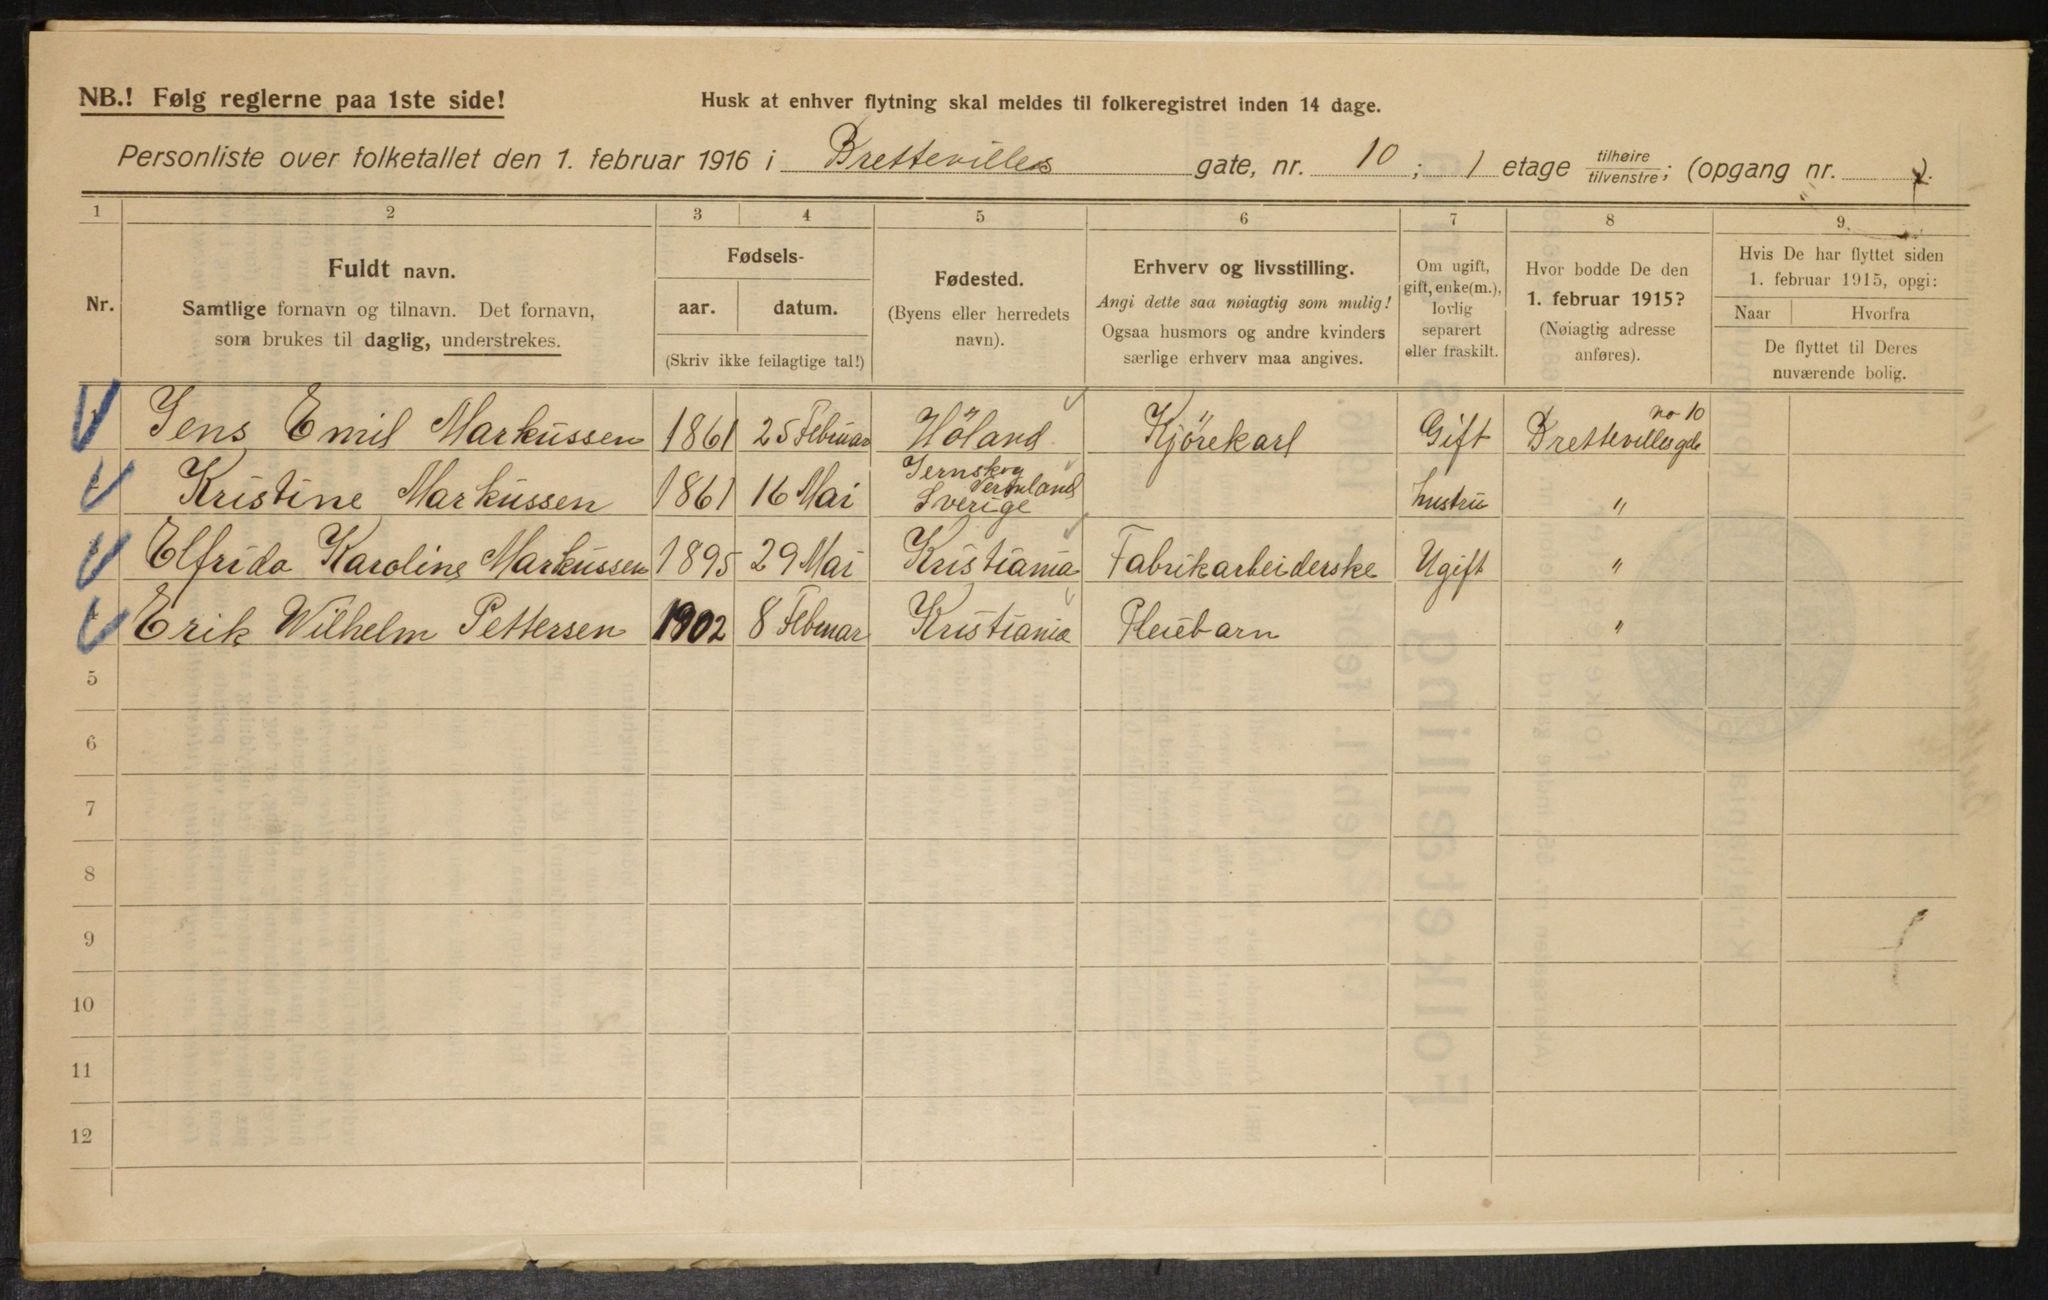 NB.! Følg reglerne paa 1ste side!
Husk at enhver flytning skal meldes til folkeregistret inden 14 dage.
Personliste over folketallet den 1. februar 1916 i Brettevilles gate, nr. 10; 1 etage tilhøire/tilvenstre; (opgang nr. ).
1 2 3 4 5 6 7 8 9.
Nr.
Fuldt navn.
Samtlige fornavn og tilnavn. Det fornavn,
som brukes til daglig, understrekes.
Fødsels-
aar. datum.
(Skriv ikke feilagtige tal!)
Fødested.
(Byens eller herredets
navn).
Erhverv og livsstilling.
Angi dette saa nøiagtig som mulig!
Ogsaa husmors og andre kvinders
særlige erhverv maa angives.
Om ugift,
gift, enke(m.),
lovlig
separert
eller fraskilt.
Hvor bodde De den
1. februar 1915?
(Nøiagtig adresse
anføres).
Hvis De har flyttet siden
1. februar 1915, opgi:
Naar Hvorfra
De flyttet til Deres
nuværende bolig.
Jens Emil Markussen 1861 25 Februar Höland Kjörekarl Gift Brettevillesgde no 10
Kristine Markussen 1861 16 Mai Jernskog Vermland Sverige hustru "
Elfrida Karoline Markussen 1895 29 Mai Kristiania Fabrikarbeiderske Ugift "
Erik Wilhelm Pettersen 1902 8 Februar Kristiania Pleiebarn "
5
6
7
8
9
10
11
12